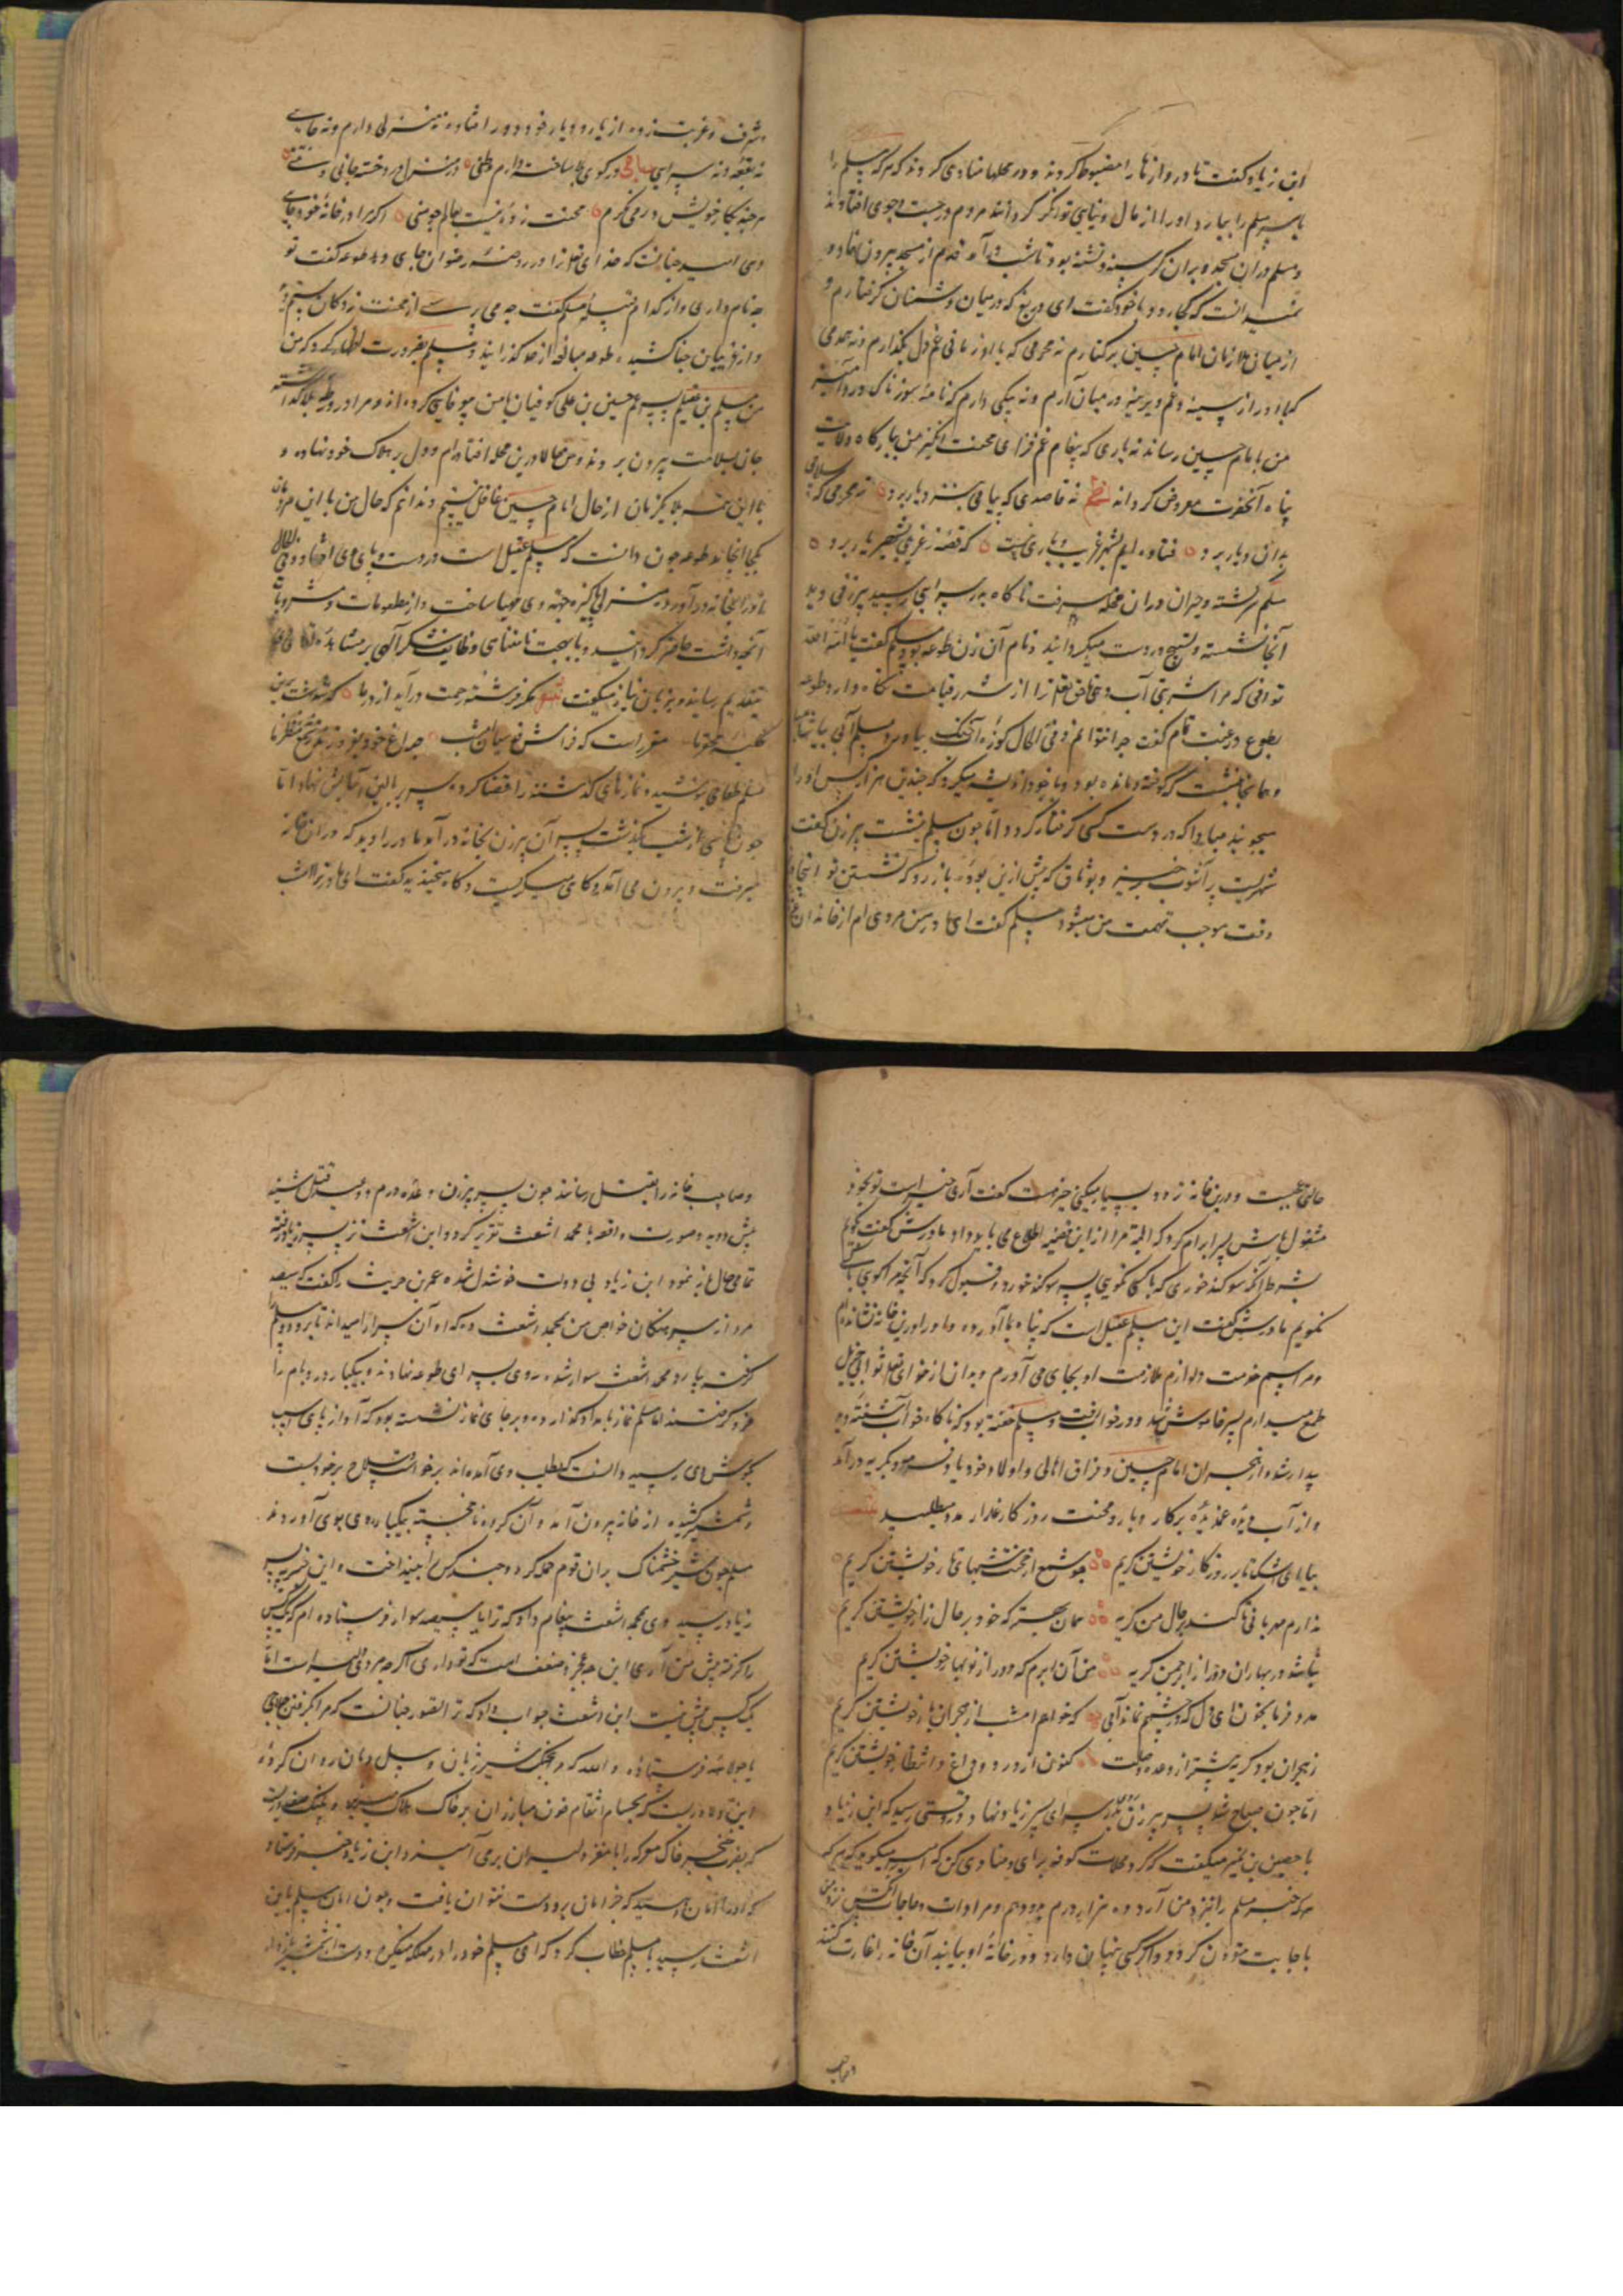 ابن زیاد گفت تا دروازها را مضبوط کردند و در محلها منادی کردند که هر که مسلم را
یا سر مسلم را بیارد او را از مال دنیایی توانگر گردانند مردم در جست و جوی افتادند
و مسلم در آن مسجد ویران گرسنه و تشنه بود تا شب درآمد قدم از مسجد بیرون نهاد و
نمیدانست که کجا رود و با خود گفت ای دریغ که در میان دشمنان گرفتارم و
از میان ملازمان امام حسین برکنارم نه محرمی که با او زمانی غم دل بگذارم و نه همدمی
که با او راز سینه و غم دیرینه در میان آرم و نه پیکی دارم که نامه سوزناک درد آمیز
من بامام حسین رساند نه یاری که پیغام غم فزای محنت انگیز من ببارگاه ولایت
پناه آنحضرت معروض گرداند نظم نه قاصدی که پیامی بنزد یار برد نه محرمی که سلامی
بدان دیار برد فتاده ایم بشهر غریب و یاری نیست که قصه ز غریبی بشهریار برد
مسلم سرگشته و حیران در آن محله میرفت ناگاه بدر سرایی رسید پیرزنی دید
آنجا نشسته و تسبیح در دست میگردانید و نام آن زن طوعه بود مسلم گفت یا امة الله
توانی که مرا شربتی آب دهی تا حق تعالی ترا از تشنگی قیامت نگاه دارد طوعه
بطوع و رغبت تمام گفت چرا نتوانم و فی الحال کوزه آب خنک بیاورد مسلم آب بیاشامید
و همانجا بنشست که کوفته و مانده بود و با خود اندیشه میکرد که چندین هزار کس او را
میجویند مبادا که در دست کسی گرفتار گردد اما چون مسلم بنشست پیرزن گفت
شهریست پر آشوب خیز و بوثاق که پیش ازین بوده باز رو که نشستن تو اینجا درین
وقت موجب تهمت من میشود مسلم گفت ای مادر من مردی ام از خاندان عز
و شرف و غربت زده از یار و دیار خود دور افتاده نه منزلی دارم و نه جایی
نه بقعه و نه سرایی در کوی بلا ساخته دارم وطنی در منزل درد خسته جانی و تنی
هر چند بکار خویش در می نگرم محنت زده نیست بعالم چو منی اگر مرا در خانه خود جای
دهی امید چنانست که خدای تعالی ترا در روضه رضوان جای دهد طوعه گفت تو
چه نام داری و از کدام قبیله مسلم گفت چه می پرسی از محنت زدگان ستم دیده
و از غریبان جفا کشیده طوعه مبالغه از حد گذرانید و مسلم بضرورت اظهار کرد که من
مسلم بن عقیلم پسر عم حسین بن علی کوفیان با من بیوفایی کردند و مرا در ورطه بلا گذاشته
جان بسلامت بیرون بردند و من حالا درین محله افتاده ام و دل بر هلاک خود نهاده و
با این همه بلا یکزمان از حال امام حسین غافل نیستم و ندانم که حال من با این مردمان
بکجا انجامد طوعه چون دانست که مسلم عقیل است در دست و پای وی افتاد و فی الحال
او را بخانه در آورد و منزلی پاکیزه جهة وی مهیا ساخت و از مطعومات و مشروبات
آنچه داشت حاضر گردانید و با بهجت نامتناهی وظایف شکر الهی بر مشاهده لقای
بتقدیم رسانید و بزبان نیاز میگفت مگر فرشته رحمت درآمد از در ما که شد بهشت برین
کلبه محقر ما مقرر است که فراش قدسیان امشب چراغ خود نیفروزد ز پرتو منظر ما
مسلم طعامی بنوشید و نمازهای گذشته را قضا کرده سر ببالین آسایش نهاد اما
چون پاسی از شب بگذشت پسر آن پیرزن بخانه در آمد مادر را دید که در آن خانه
میرفت و بیرون می آمد و گاهی میگریست و گاه میخندید گفت ای مادر ترا امشب
حالی عجیبست و درین خانه تردد بسیار میکنی خیر هست گفت آری خیر است تو بخود
مشغول باش پسر ابرام کرد که البته مرا ازین قضیه اطلاع می باید داد مادرش گفت بگویم
بشرط آنکه سوگند خوری که با کس نگویی پسر سوگند خورد و قبول کرد که آنچه مرا گویی با کسی
نگویم مادرش گفت این مسلم عقیل است که پناه بما آورده و او را درین خانه نشانده ام
و مراسم خدمت و لوازم ملازمت او بجای می آورم و بدان از خدای تعالی ثواب جزیل
طمع میدارم پسر خاموش شد و در خواب رفت و مسلم خفته بود که ناگاه خواب آشفته دید
بیدار شد و از هجران امام حسین و فراق اهالی و اولاد خود یاد نمود و بگریه درآمد
و از آب دیده غمدیده بر کار و بار و محنت روزگار غدار مدد میطلبید
بیا ای اشک تا بر روزگار خویشتن گریم چو شمع از محنت شبهای تار خویشتن گریم
ندارم مهربانی تا کند بر حال من گریه همان بهتر که خود بر حال زار خویشتن گریم
نباشد در بهاران دور از ابر چمن گریه من آن ابرم که دور از نوبهار خویشتن گریم
مدد فرما بخون ای دل که در چشمم نماند آبی که خواهم امشب از هجران یار خویشتن گریم
ز هجران بود گریه پیشتر از وعده وصلت کنون از درد و داغ و انتظار خویشتن گریم
اما چون صباح شد پسر پیرزن رو بدر سرای پسر زیاد نهاد و در وقتی رسید که ابن زیاد
با حصین بن نمیر میگفت که گرد محلات کوفه برآی و منادی کن که امیر میگوید که
هر که خبر مسلم را نزد من آرد ده هزار درم بدو دهم و مرادات و حاجات آنکس نزد من
باجابت مقرون گردد و اگر کسی پنهان دارد و در خانه او بیابند آن خانه را غارت کنند
و صاحب
و صاحب خانه را بقتل رسانند چون پسر پیرزن وعده درم و وعید قتل شنید
پیش دوید و صورت واقعه با محمد اشعث تقریر کرد و ابن اشعث نزد پسر زیاد رفته
تمامی حال باز نمود ابن زیاد بی دولت خوشدل شده عمر بن حریث را گفت که سیصد
مرد از سرهنگان خواص من بمحمد اشعث ده که او آن سرا را میداند تا برود و مسلم را
گرفته بیارد محمد اشعث سوار شده روی بسرای طوعه نهادند و بیکبار در و بام را
فرو گرفتند اما مسلم نماز بامداد گذارده و بر جای نماز نشسته بود که آواز پای اسب
بگوش وی رسید دانست که بطلب وی آمده اند برخاست سلاح بر خود بست
و شمشیر کشیده از خانه بیرون آمد و آن گروه ناخجسته بیکبار روی بوی آوردند
مسلم چون شیر خشمناک بر آن قوم حمله کرد و چند کس را بینداخت و این خبر به پسر
زیاد رسید وی بمحمد اشعث پیغام داد که ترا با سیصد سوار فرستاده ام که یک کس
را گرفته پیش من آری این چه عجز و ضعف است که تو داری اگر چه مرد دلیر است اما
یک کس بیش نیست ابن اشعث جواب داد که ترا تصور چنانست که مرا بگرفتن جولاهی
یا جولاهه فرستاده و الله که بجنگ شیر ژیان و سیل دمان روان کرده
این دلاوریست که بحسام انتقام خون مبارزان بر خاک هلاک میریزد و پلنگ صفدریست
که بضرب خنجر خاک معرکه را با مغز دلیران برمی آمیزد و ابن زیاد خبر فرستاد
که او را امان دهید که جز بامان برو دست نتوان یافت و چون امان مسلم بابن
اشعث رسید با مسلم خطاب کرد که ای مسلم خود را در مهلکه میفکن و دست از شمشیر باز دار